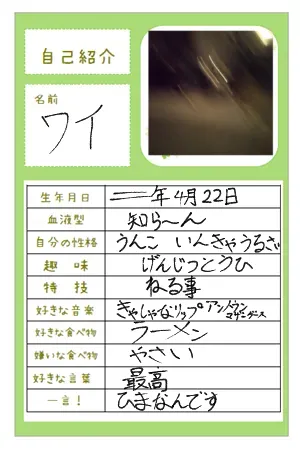 自己紹介
名前
ワイ
生年月日 ――年4月22日
血液型 知ら~ん
自分の性格 うんこ いんきゃうるさ
趣味 げんじっとうひ
特技 ねる事
好きな音楽 きゃしゃなリップ アンノウン マザーグース
好きな食べ物 ラーメン
嫌いな食べ物 やさい
好きな言葉 最高
一言! ひまなんです